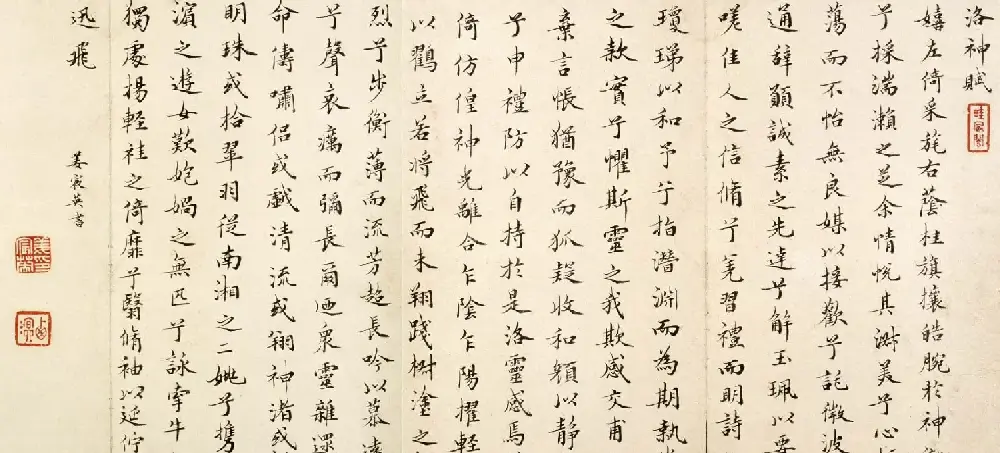 洛神賦
嬉左倚采旄右蔭桂旗攘皓腕於神
兮採湍瀨之芝余情悅其淑美兮心
蕩而不怡無良媒以接歡兮託微波
通辭願誠素之先達兮解玉珮以要
嗟佳人之信脩兮羌習禮而明詩
瓊珶以和予兮指潛淵而為期執
之款實兮懼斯靈之我欺感交甫
棄言悵猶豫而狐疑收和顏以靜
兮申禮防以自持於是洛靈感焉
倚仿偟神光離合乍陰乍陽擢輕
以鶴立若將飛而未翔踐樹塗之
烈兮步衡薄而流芳超長吟以慕遠
兮聲哀厲而彌長爾迺衆靈雜遝
命儔嘯侶或戲清流或翔神渚或
明珠或拾翠羽從南湘之二姚兮攜
濱之遊女歎匏媧之無匹兮詠牽牛
獨處揚輕袿之倚靡兮翳脩袖以延佇
迅飛
姜宸英書